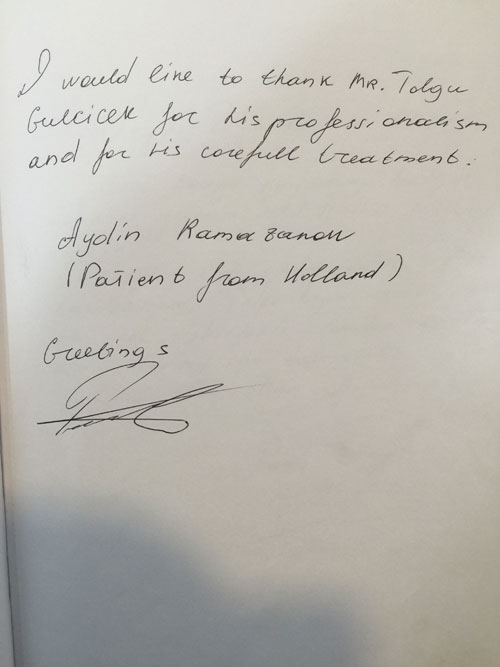 I would line to thank MR. Tolgu
Gulcicek for his professionalism
and for his carefull treatment.
Aydin Ramazanov
(Patient from Holland)
Greetings